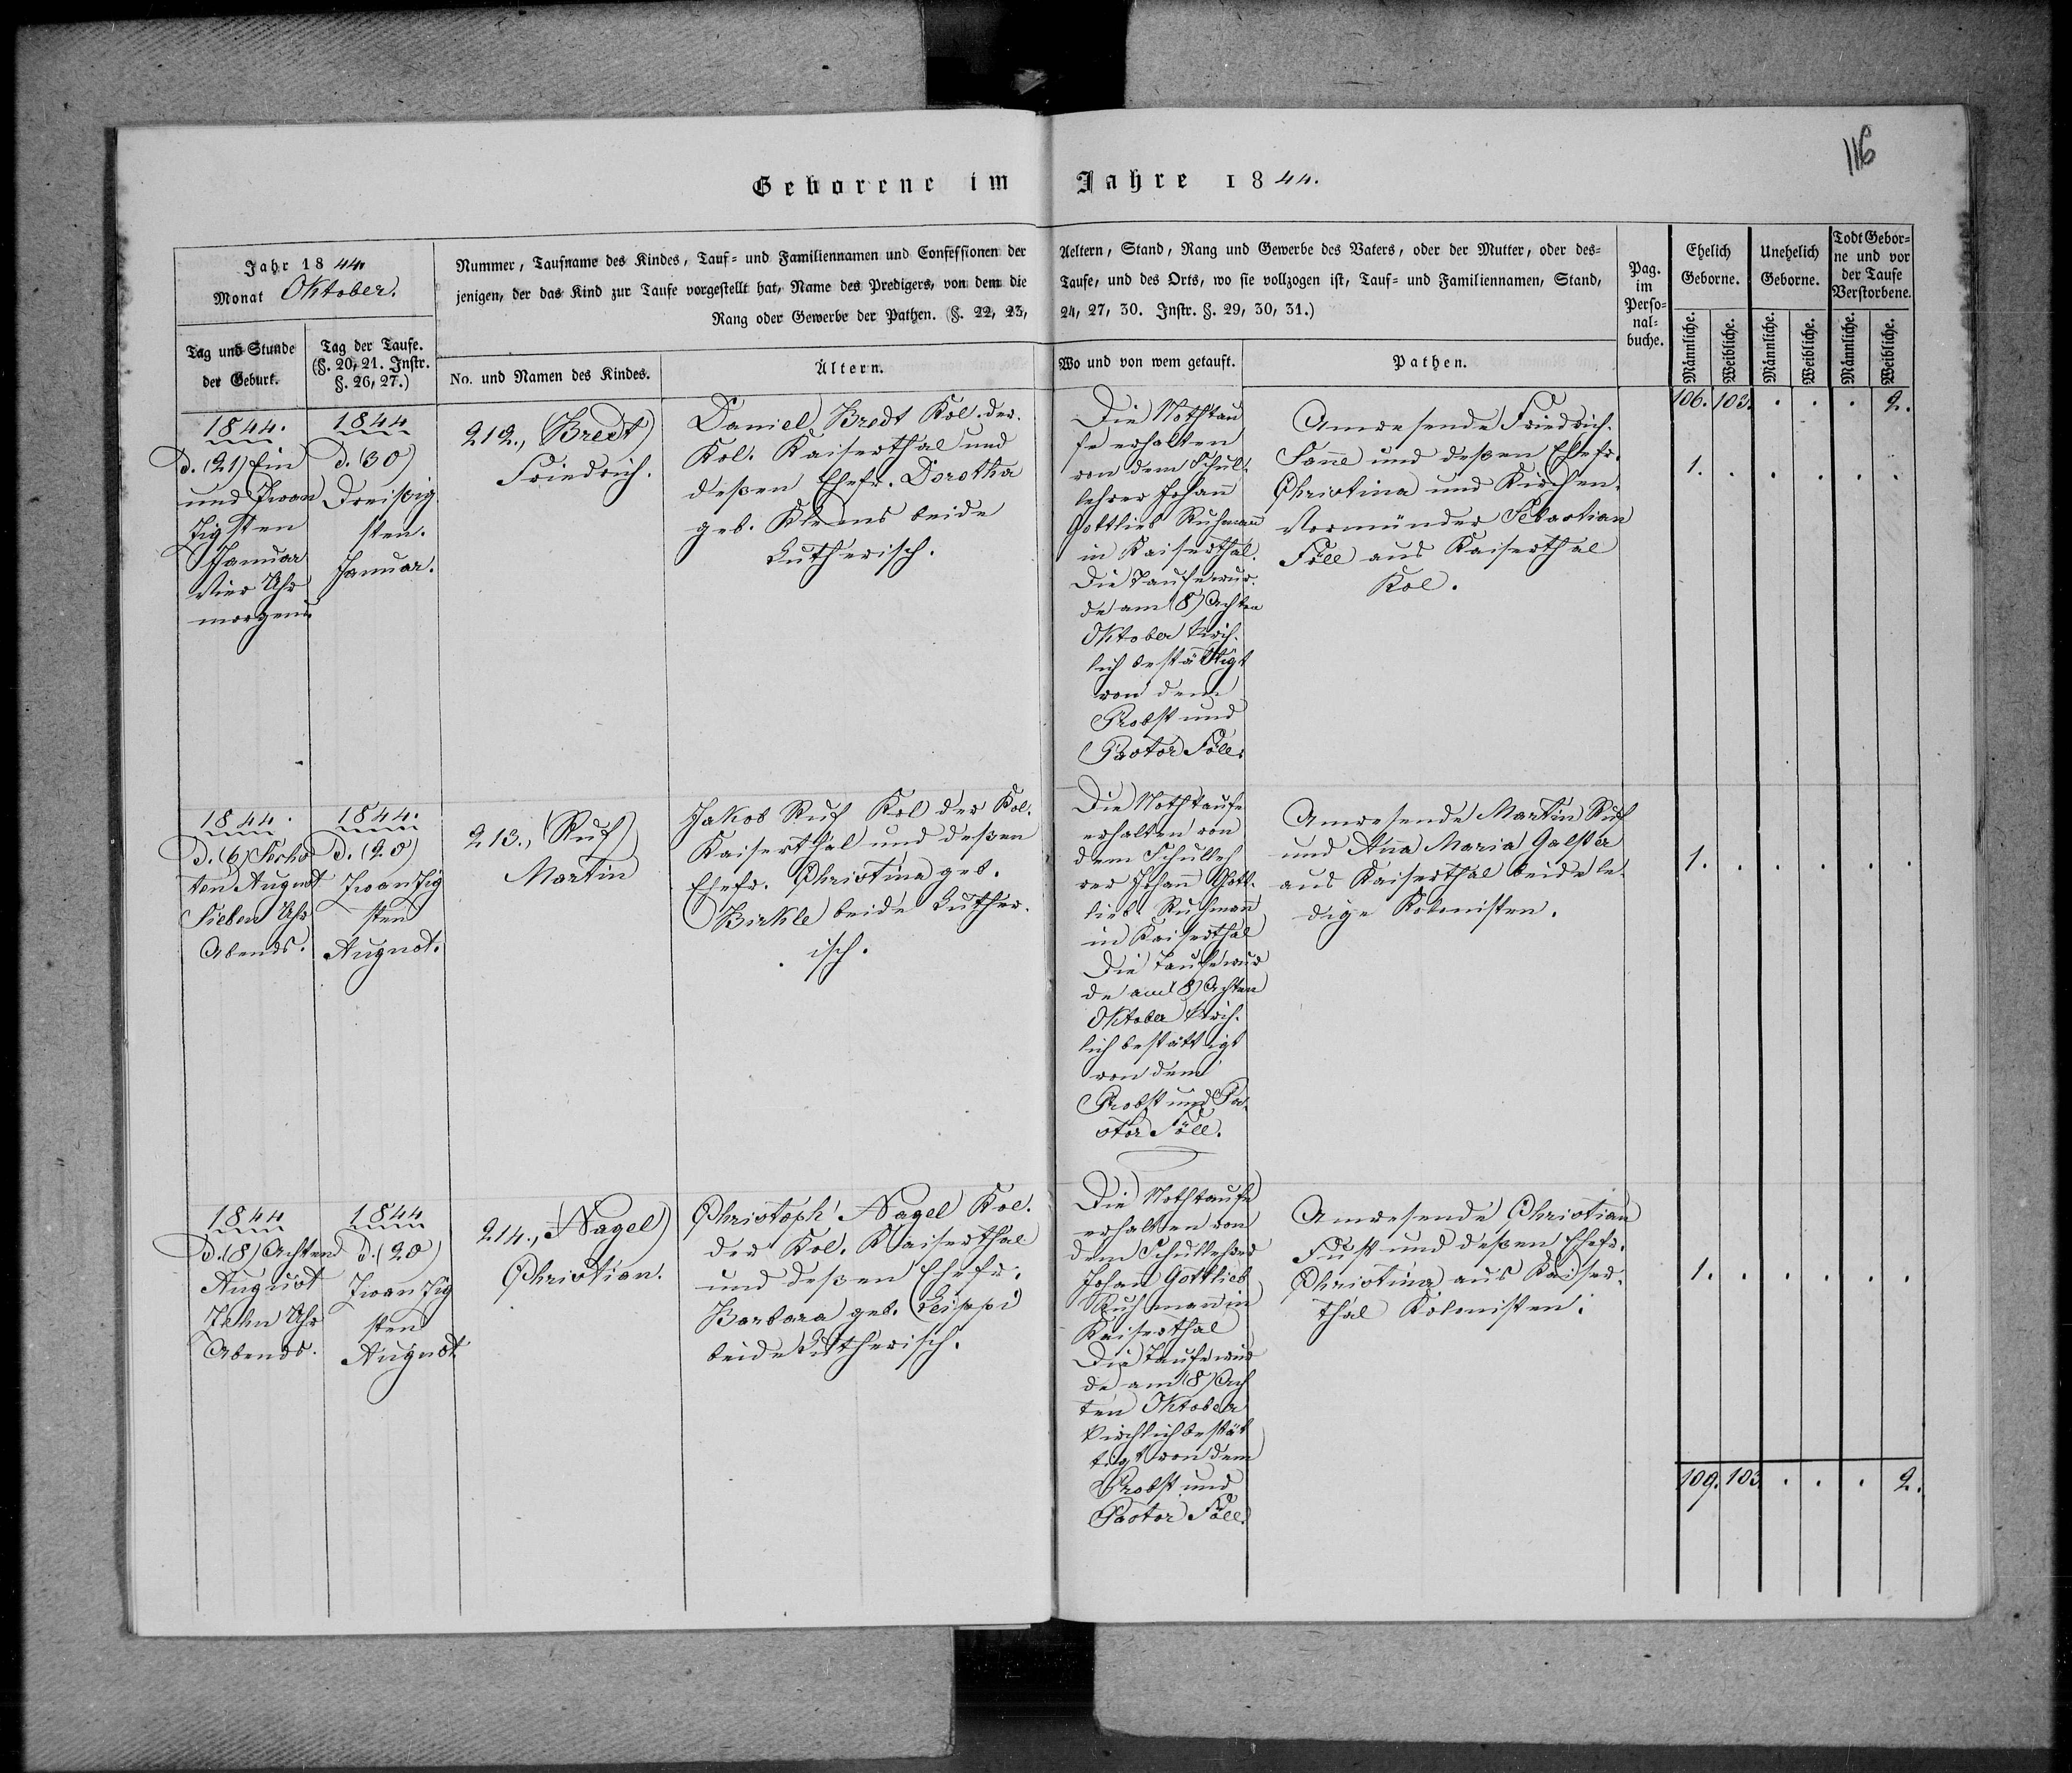 116
Geborene im Jahre 1844.
Jahr 1844.
Monat Oktober.
Tag und Stunde
der Geburt.
Tag der Taufe.
(§. 20, 21. Instr.
§. 26, 27.)
Nummer, Taufname des Kindes, Tauf- und Familiennamen und Confessionen der Aeltern, Stand, Rang und Gewerbe des Vaters, oder der Mutter, oder des=
jenigen, der das Kind zur Taufe vorgestellt hat, Name des Predigers, von dem die Taufe, und des Orts, wo sie vollzogen ist, Tauf- und Familiennamen, Stand,
Rang oder Gewerbe der Pathen. (§. 22, 23, 24, 27, 30. Instr. §. 29, 30, 31.)
No. und Namen des Kindes.
Ältern.
Wo und von wem getauft.
Pathen.
Pag.
im
Perso=
nal=
buche.
Ehelich
Geborne.
Unehelich
Geborne.
Todt Gebor=
ne und vor
der Taufe
Verstorbene.
Männliche.
Weibliche.
Männliche.
Weibliche.
Männliche.
Weibliche.
106. 103. . . . 2.
1844.
D. (21) Ein
und Zwan
zigsten
Januar
Vier Uhr
morgens
1844
d. (30)
Dreißig
sten.
Januar.
212., (Bredt)
Friedrich.
Daniel Bredt Kol. der
Kol. Kaiserthal und
deßen Ehefr. Dorothea
geb. Klemens beide
Lutherisch.
Die Nothtau
fe erhalten
von dem Schul
lehrer Johann
Gottlieb Ruhmann
in Kaiserthal.
Die Taufe wur
de am (8) Achten
Oktober kirch
lich bestättigt
von dem
Probst und
Pastor Föll.
Anwesende Friedrich
und deßen Ehefr.
Christina und Kirchen
Vormünder Sebastian
Föll aus Kaiserthal
Kol.
1. . . . . .
1844.
D. (6) Sechs
ten August
Sieben Uhr
Abends.
1844.
D. (20)
Zwanzig
sten
August.
213., (Ruf)
Martin
Jakob Ruf Kol der Kol.
Kaiserthal und deßen
Ehefr. Christina geb.
Birkle beide Luther
isch.
Die Nothtaufe
erhalten von
dem Schulleh
rer Johann Gott
lieb Ruhmann
in Kaiserthal
Die Taufe wur
de am (8) Achten
Oktober kirch
lich bestättigt
von dem
Probst und Pa
stor Föll.
Anwesende Martin Ruf
und Anna Maria Galster
aus Kaiserthal beide le
dige Kolonisten.
1. . . . . .
1844
D. (8) Achten
August
Zehn Uhr
Abends.
1844
d. (20)
Zwanzig
sten
August
214., Nagel)
Christian.
Christoph Nagel Kol.
der Kol. Kaiserthal
und deßen Ehefr.
Barbara geb. Leippi
beide Lutherisch.
Die Nothtaufe
erhalten von
dem Schullehrer
Johann Gottlieb
Ruhmann in
Kaiserthal
Die Taufe wur
de am (8) Ach
ten Oktober
kirchlich bestät
tigt von dem
Probst und
Pastor Föll
Anwesende Christian
Fust und deßen Ehefr.
Christina aus Kaiser
thal Kolonisten.
1. . . . . .
109. 103 . . . 2.